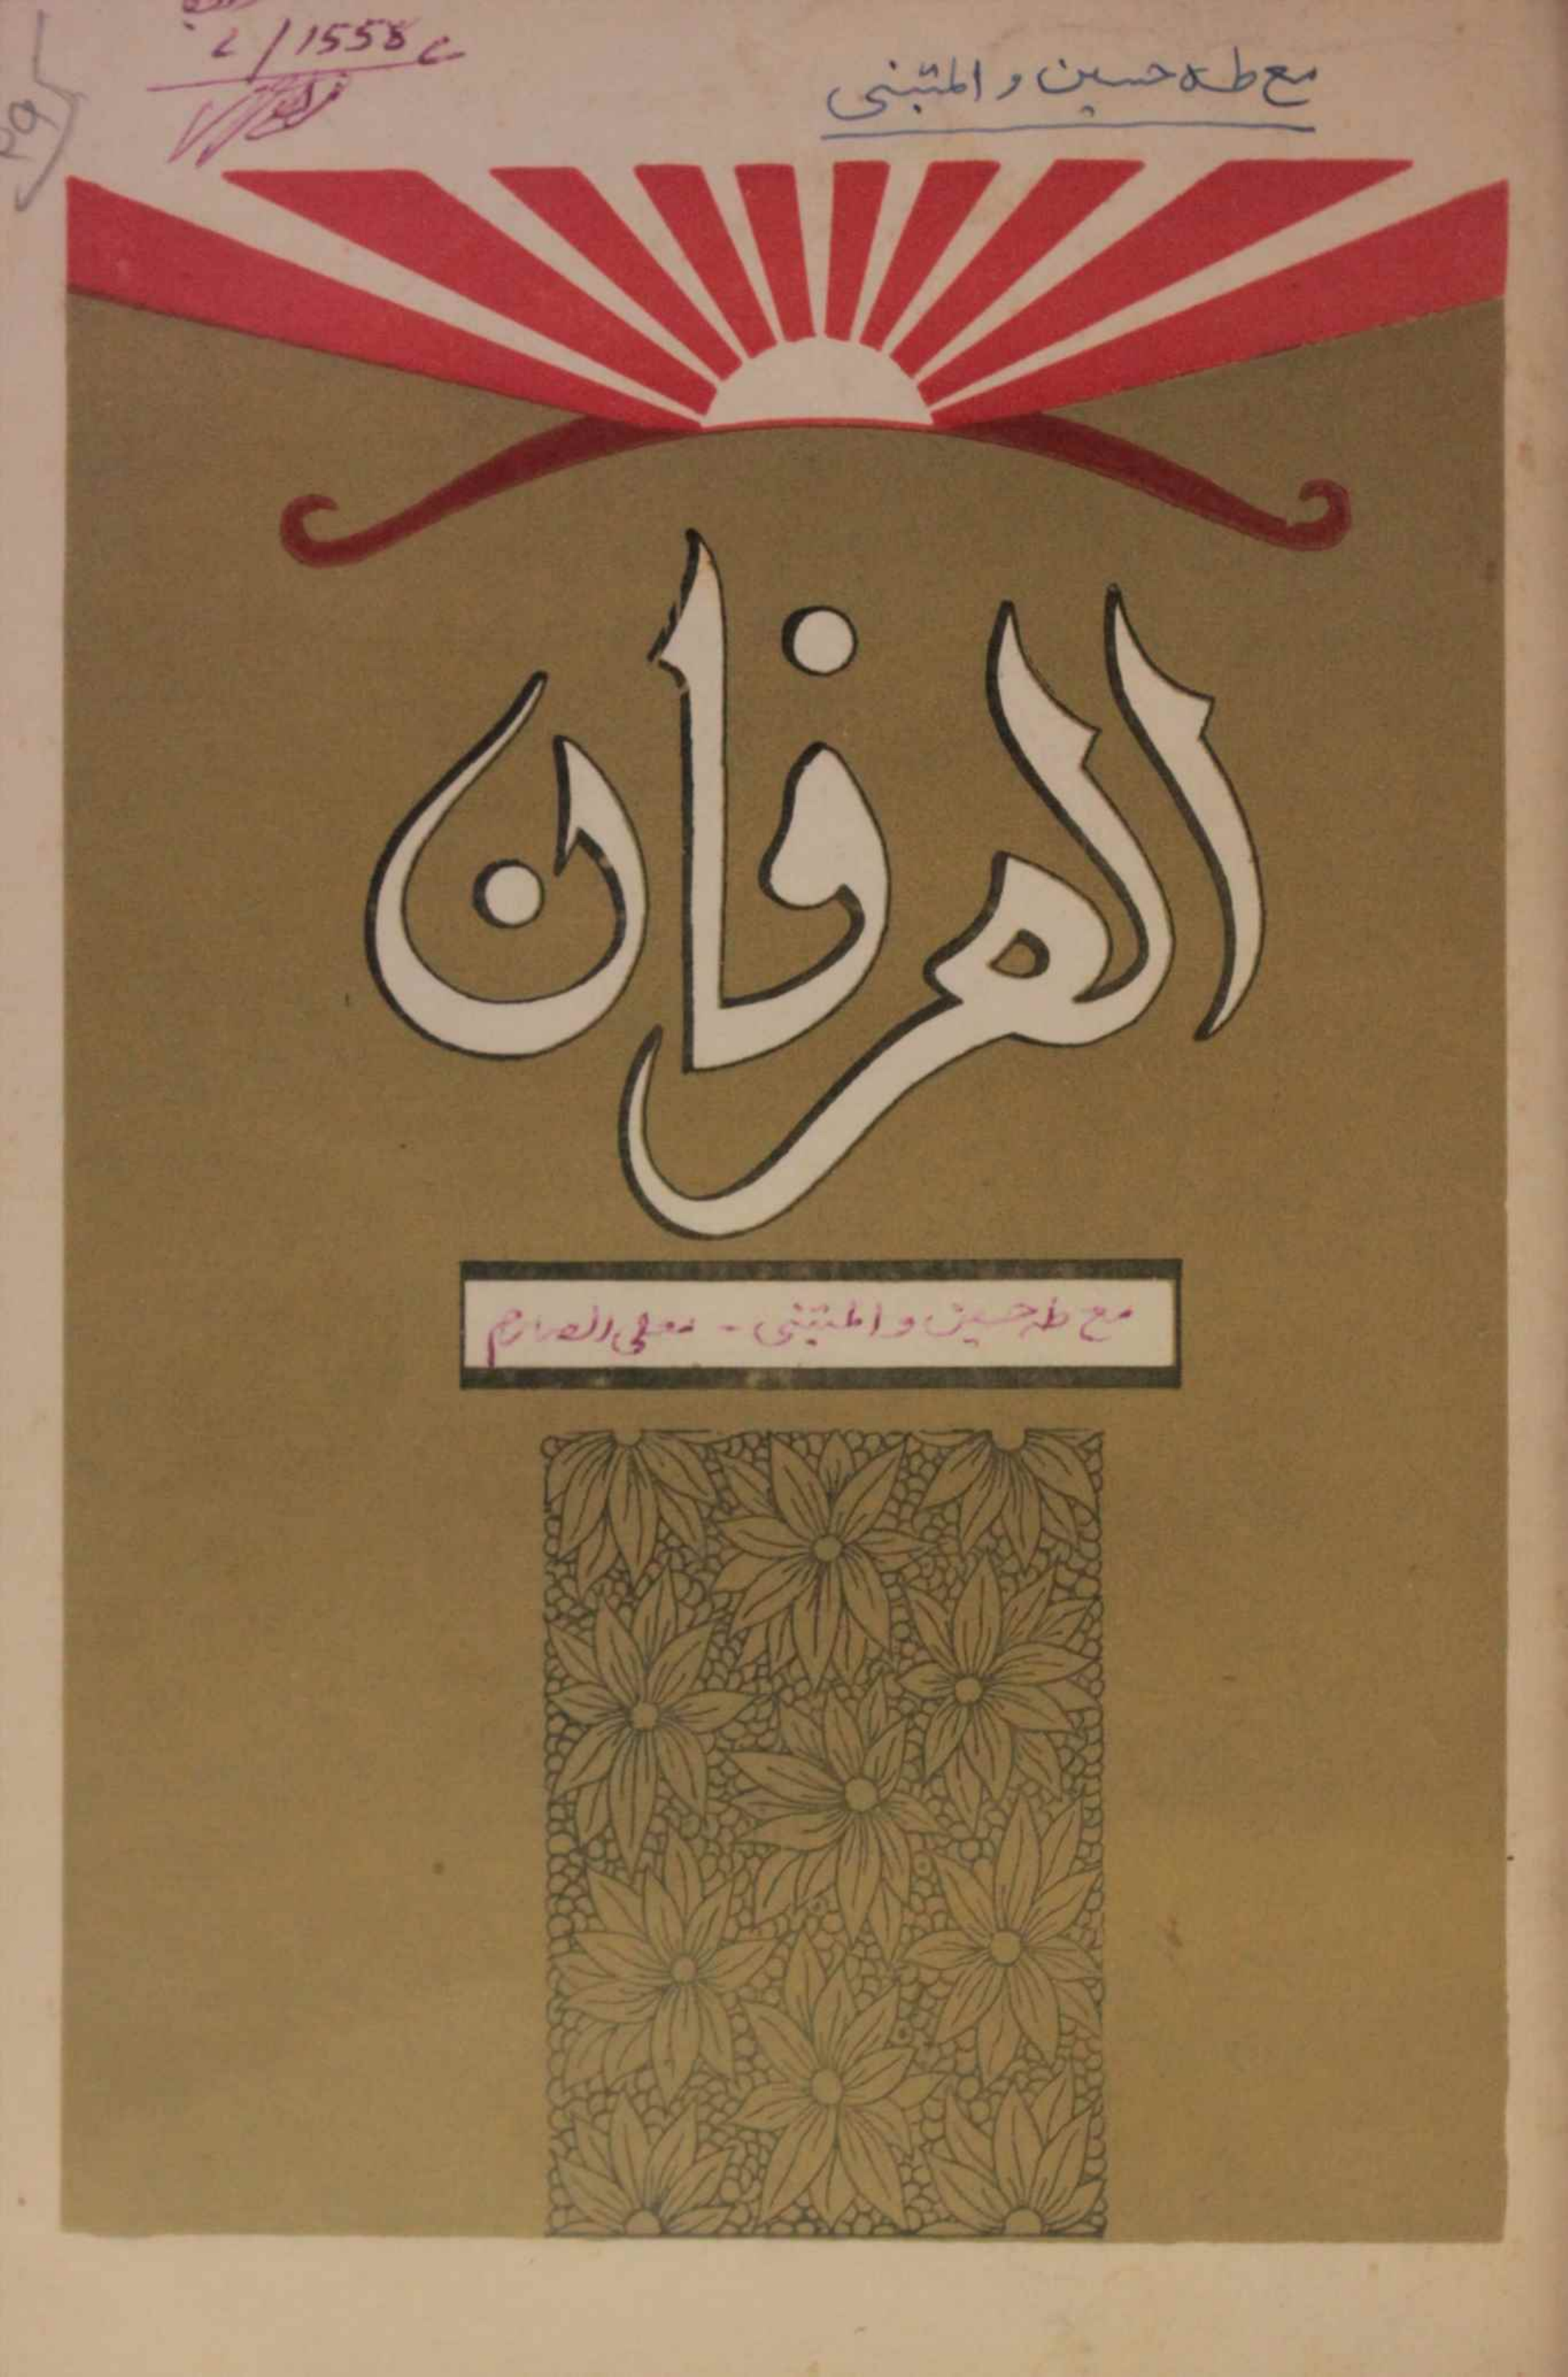 1558
مع طه حسين و المتنبي
العرفان
مع طه حسين و المتنبي -